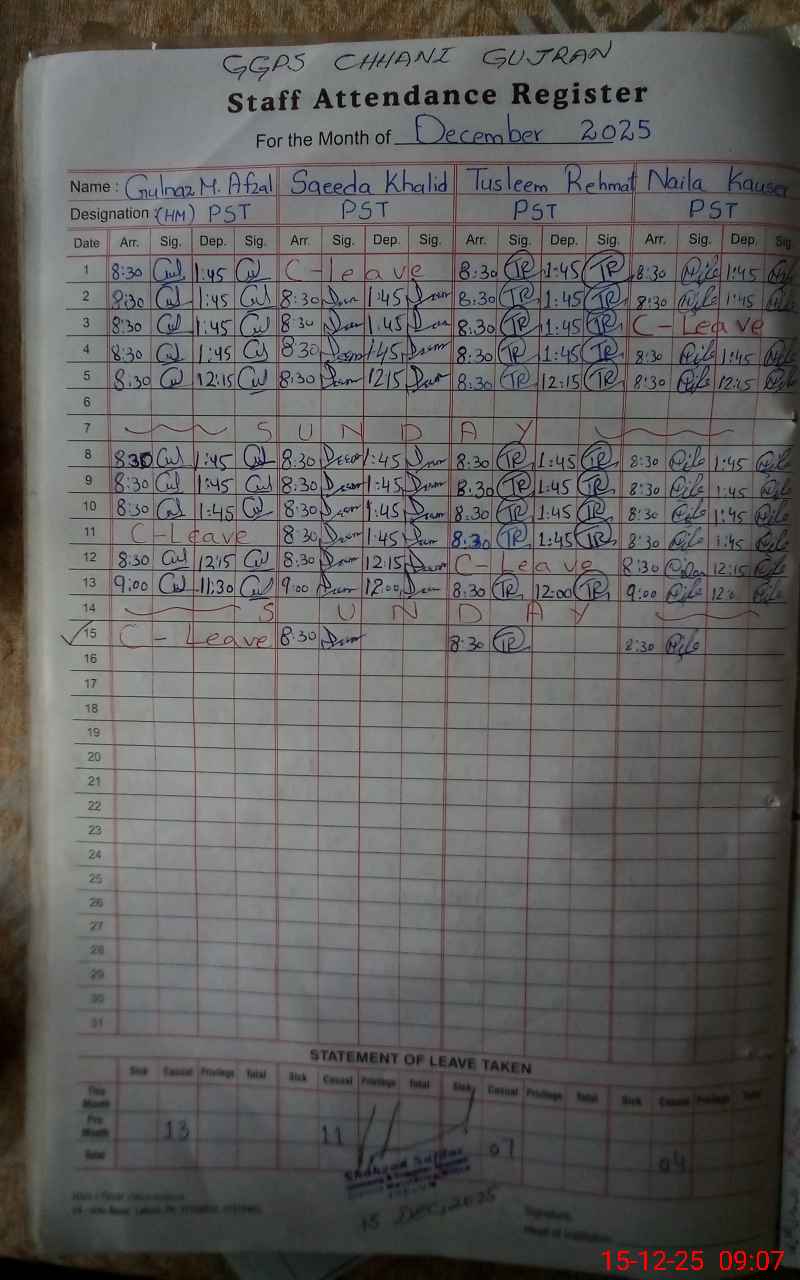 GGPS CHHANI GUJRAN
Staff Attendance Register
For the Month of December 2025
Name : Gulnaz M. Afzal Saeeda Khalid Tusleem Rehmat Naila Kauser
Designation : (HM) PST PST PST PST
Date Arr. Sig. Dep. Sig. Arr. Sig. Dep. Sig. Arr. Sig. Dep. Sig. Arr. Sig. Dep. Sig.
1 8:30 1:45 C-leave 8:30 TR 1:45 TR 8:30 1:45
2 8:30 1:45 8:30 1:45 8:30 TR 1:45 TR 8:30 1:45
3 8:30 1:45 8:30 1:45 8:30 TR 1:45 TR C-Leave
4 8:30 1:45 8:30 1:45 8:30 TR 1:45 TR 8:30 1:45
5 8:30 12:15 8:30 12:15 8:30 TR 12:15 TR 8:30 12:15
6
7 SUNDAY
8 8:30 1:45 8:30 1:45 8:30 TR 1:45 TR 8:30 1:45
9 8:30 1:45 8:30 1:45 8:30 TR 1:45 TR 8:30 1:45
10 8:30 1:45 8:30 1:45 8:30 TR 1:45 TR 8:30 1:45
11 C-Leave 8:30 1:45 8:30 TR 1:45 TR 8:30 1:45
12 8:30 12:15 8:30 12:15 C-Leave 8:30 12:15
13 9:00 11:30 9:00 12:00 8:30 TR 12:00 TR 9:00
14 SUNDAY
15 C-Leave 8:30 8:30 TR 8:30
16
17
18
19
20
21
22
23
24
25
26
27
28
29
30
31
STATEMENT OF LEAVE TAKEN
Sick Casual Privilege Total Sick Casual Privilege Total Sick Casual Privilege Total Sick Casual Privilege Total
This Month
Pre Month 13 11 07 04
Total
15 DEC, 2025
Signature
Head of Institution
15-12-25 09:07